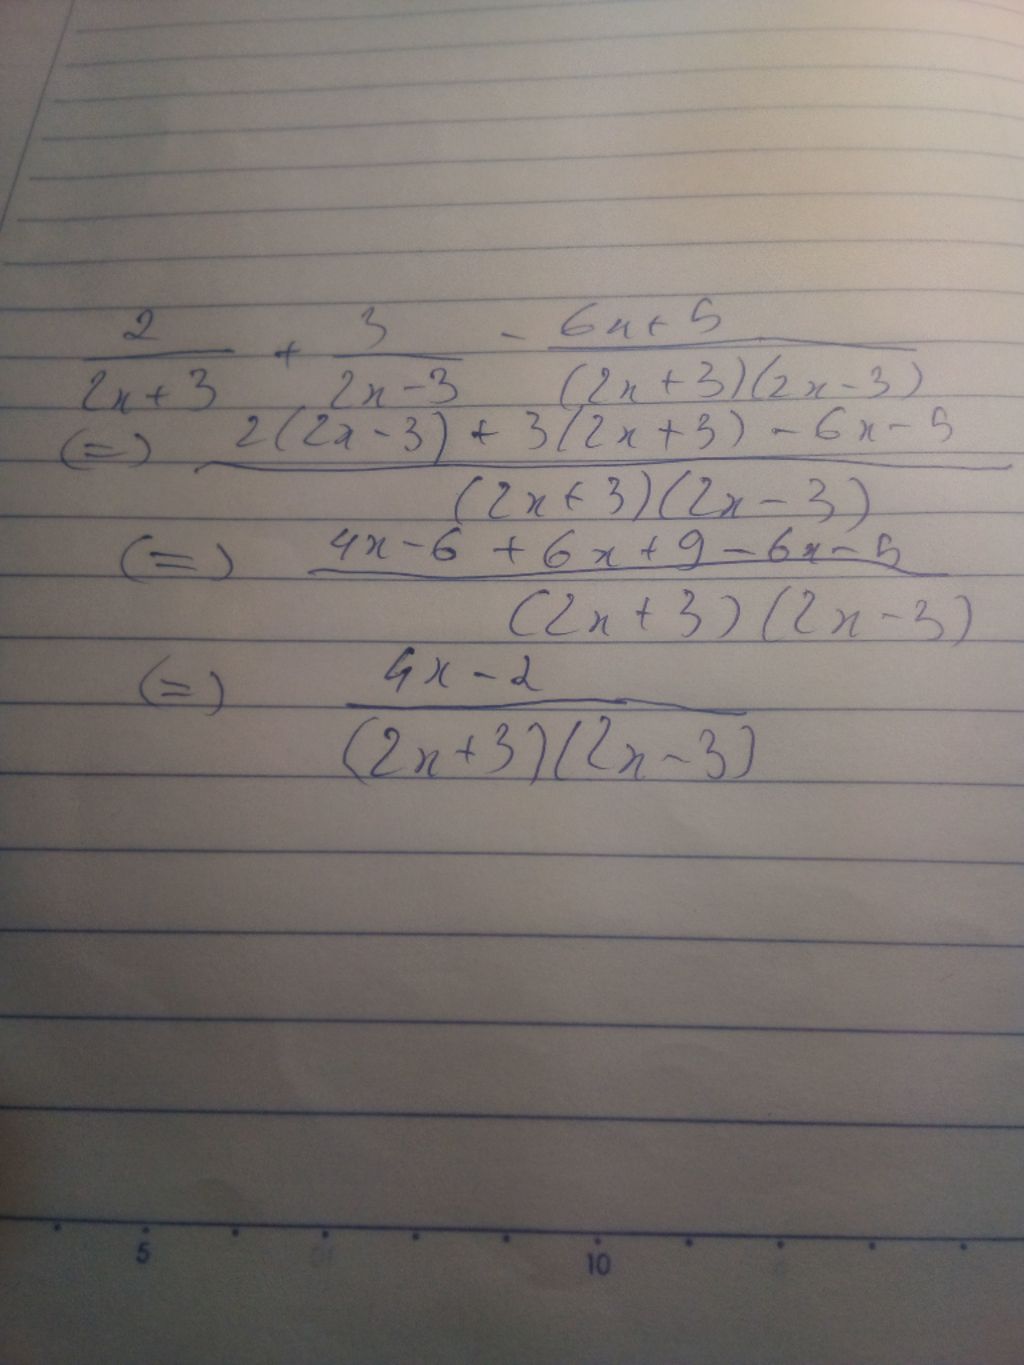 2/(2x+3) + 3/(2x-3) - (6x+5)/((2x+3)(2x-3))
(=) (2(2x-3) + 3(2x+3) - 6x-5)/((2x+3)(2x-3))
(=) (4x-6 + 6x+9-6x-5)/((2x+3)(2x-3))
(=) (4x-2)/((2x+3)(2x-3))
5 10